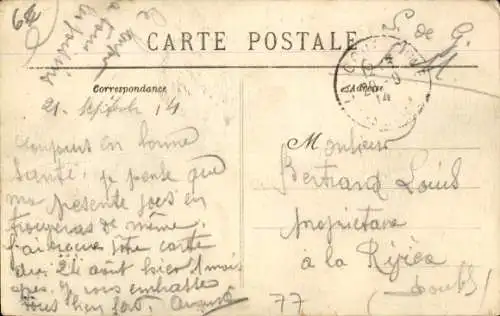 62
CARTE POSTALE
S. de G.
M
Correspondance
Adresse
21 Septembre 14
Toujours en bonne
santé. je pense que
ma présente vous en
trouveras de même.
J'ai reçue vôtre carte
du 24 août hier 1 mois
après. Je vous embrasse
tous bien fort.
Monsieur
Bertrand Louis
propriétaire
à la
(Doubs)
77